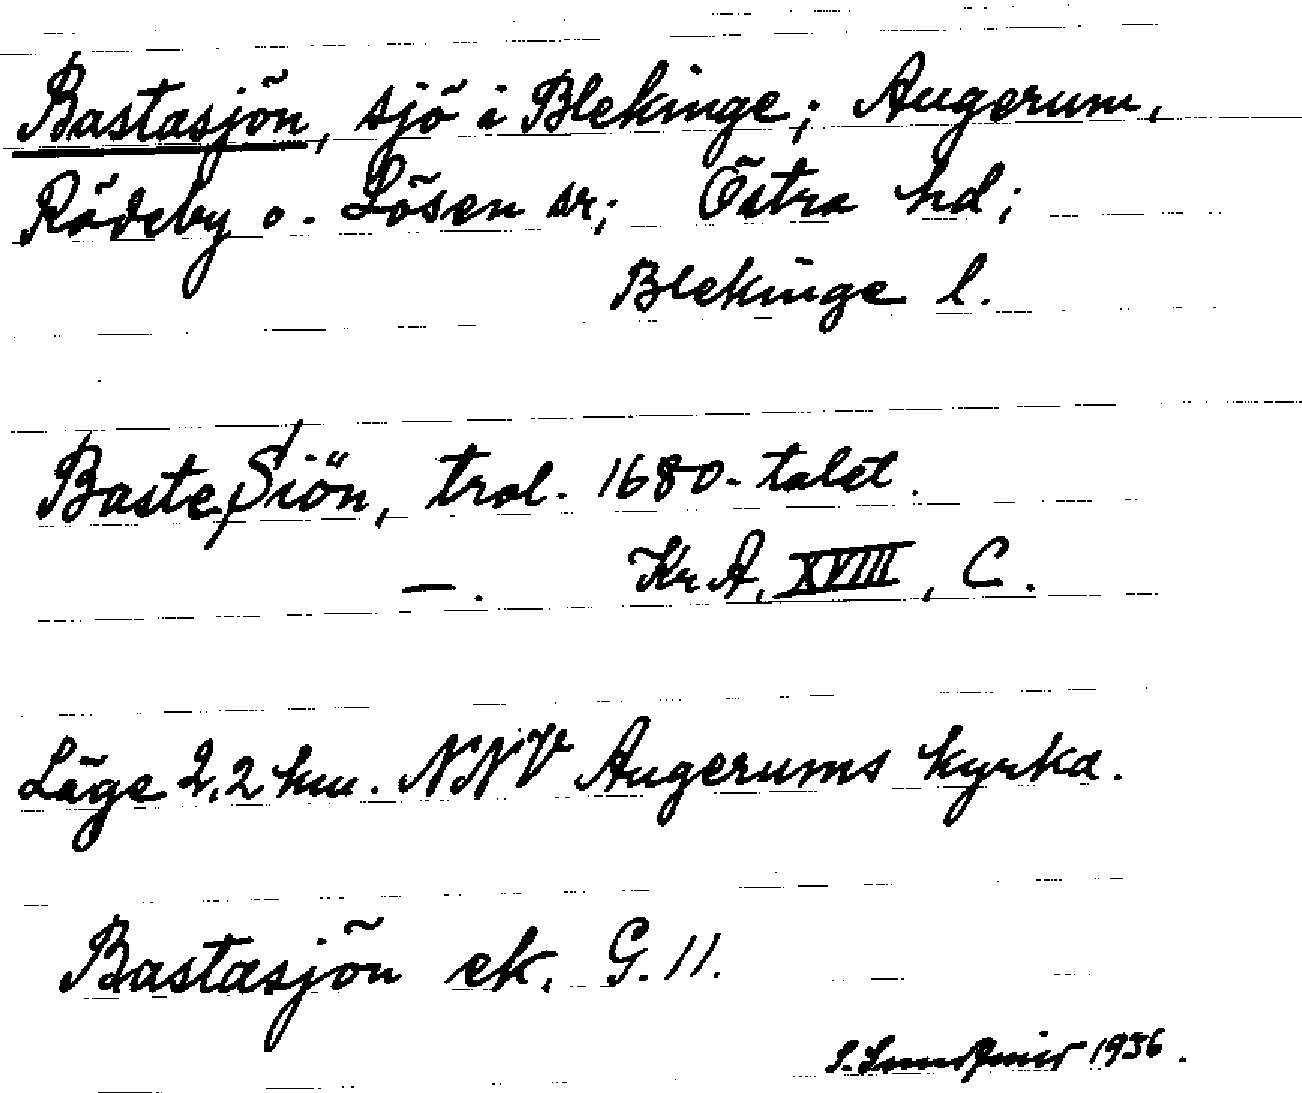 Bastasjön, sjö i Blekinge; Augerum,
Rödeby o. Lösen sr; Östra hd;
Blekinge l.
Baste Siön, trol. 1680-talet.
—. Kr A, XVIII, C.
Läge 2,2 km. NNV Augerums kyrka.
Bastasjön ek. G. 11.
1936.